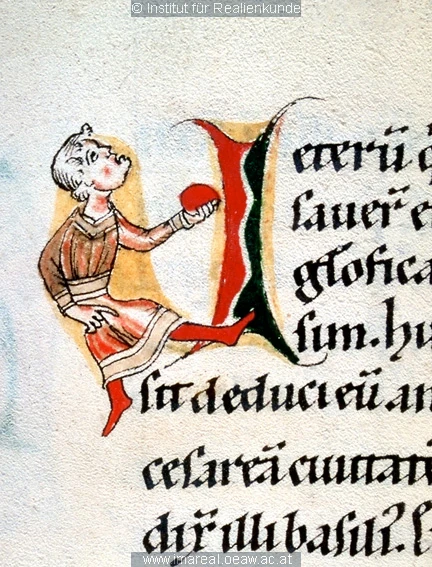 © Institut für Realienkunde
Ueterū q̄
sauer̄ e
gl̄ofica
sim. hu
sit deduci eū an
cesareā ciuitatē
dix̄ illi basil᾽.
www.imareal.oeaw.ac.at